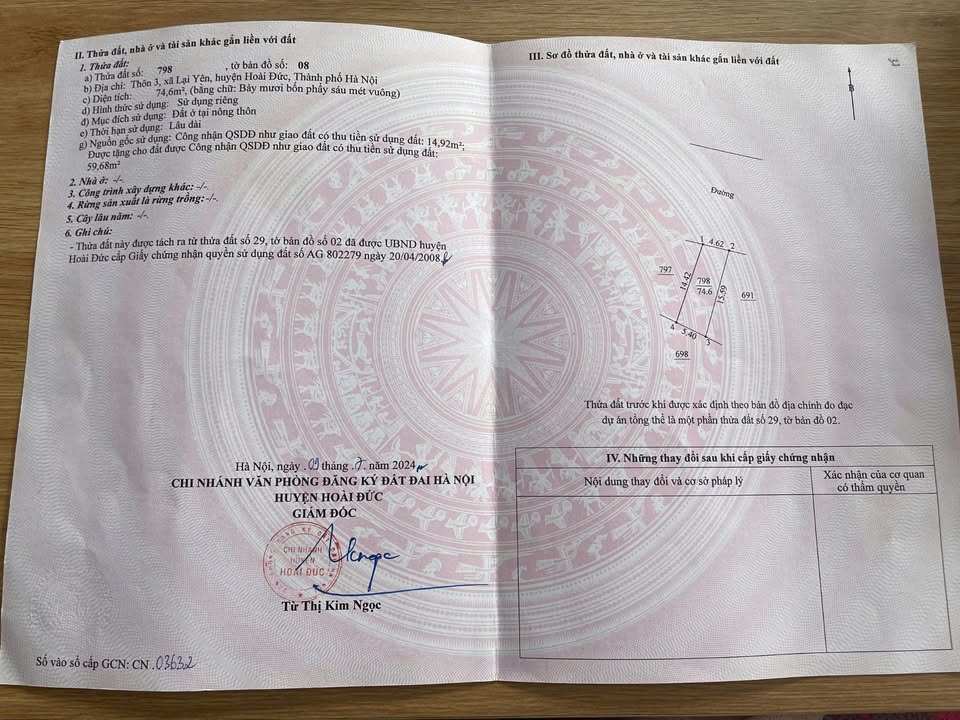 II. Thửa đất, nhà ở và tài sản khác gắn liền với đất
1. Thửa đất:
a) Thửa đất số: 798 , tờ bản đồ số: 08
b) Địa chỉ: Thôn 3, xã Lại Yên, huyện Hoài Đức, Thành phố Hà Nội
c) Diện tích: 74,6m², (bằng chữ: Bảy mươi bốn phẩy sáu mét vuông)
d) Hình thức sử dụng: Sử dụng riêng
đ) Mục đích sử dụng: Đất ở tại nông thôn
e) Thời hạn sử dụng: Lâu dài
g) Nguồn gốc sử dụng: Công nhận QSDĐ như giao đất có thu tiền sử dụng đất: 14,92m²;
Được tặng cho đất được Công nhận QSDĐ như giao đất có thu tiền sử dụng đất:
59,68m²
2. Nhà ở: -/-.
3. Công trình xây dựng khác: -/-.
4. Rừng sản xuất là rừng trồng: -/-.
5. Cây lâu năm: -/-.
6. Ghi chú:
- Thửa đất này được tách ra từ thửa đất số 29, tờ bản đồ số 02 đã được UBND huyện
Hoài Đức cấp Giấy chứng nhận quyền sử dụng đất số AG 802279 ngày 20/04/2008
Hà Nội, ngày 09 tháng 7. năm 2024
CHI NHÁNH VĂN PHÒNG ĐĂNG KÝ ĐẤT ĐAI HÀ NỘI
HUYỆN HOÀI ĐỨC
GIÁM ĐỐC
CHI NHÁNH
HUYỆN
HOÀI ĐỨC
Từ Thị Kim Ngọc
Số vào sổ cấp GCN: CN .03632
III. Sơ đồ thửa đất, nhà ở và tài sản khác gắn liền với đất
B
Đường
1 4.62 2
797
14.42
798
74.6
15.59
691
4 5.40 3
698
Thửa đất trước khi được xác định theo bản đồ địa chính đo đạc
dự án tổng thể là một phần thửa đất số 29, tờ bản đồ 02.
IV. Những thay đổi sau khi cấp giấy chứng nhận
Nội dung thay đổi và cơ sở pháp lý
Xác nhận của cơ quan
có thẩm quyền